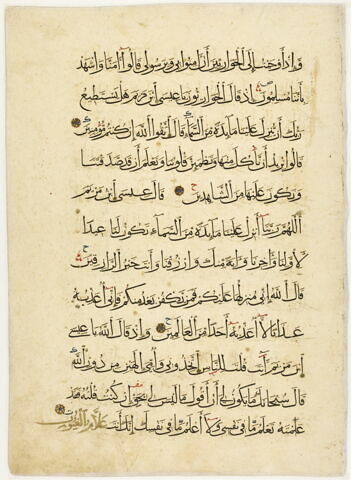 واذ اوحيت الى الحواريين ان امنوا بي وبرسولي قالوا امنا واشهد
باننا مسلمون اذ قال الحواريون يا عيسى ابن مريم هل يستطيع
ربك ان ينزل علينا مايدة من السماء قال اتقوا الله ان كنتم مؤمنين
قالوا نريد ان ناكل منها وتطمين قلوبنا ونعلم ان قد صدقتنا
ونكون عليها من الشاهدين قال عيسى ابن مريم
اللهم ربنا انزل علينا مايدة من السماء تكون لنا عيدا
لاولنا واخرنا واية منك وارزقنا وانت خير الرازقين
قال الله اني منزلها عليكم فمن يكفر بعد منكم فاني اعذبه
عذابا لا اعذبه احدا من العالمين واذ قال الله يا عيسى
ابن مريم اانت قلت للناس اتخذوني وامي الهين من دون الله
قال سبحانك ما يكون لي ان اقول ما ليس لي بحق ان كنت قلته فقد
علمته تعلم ما في نفسي ولا اعلم ما في نفسك انك انت علام الغيوب